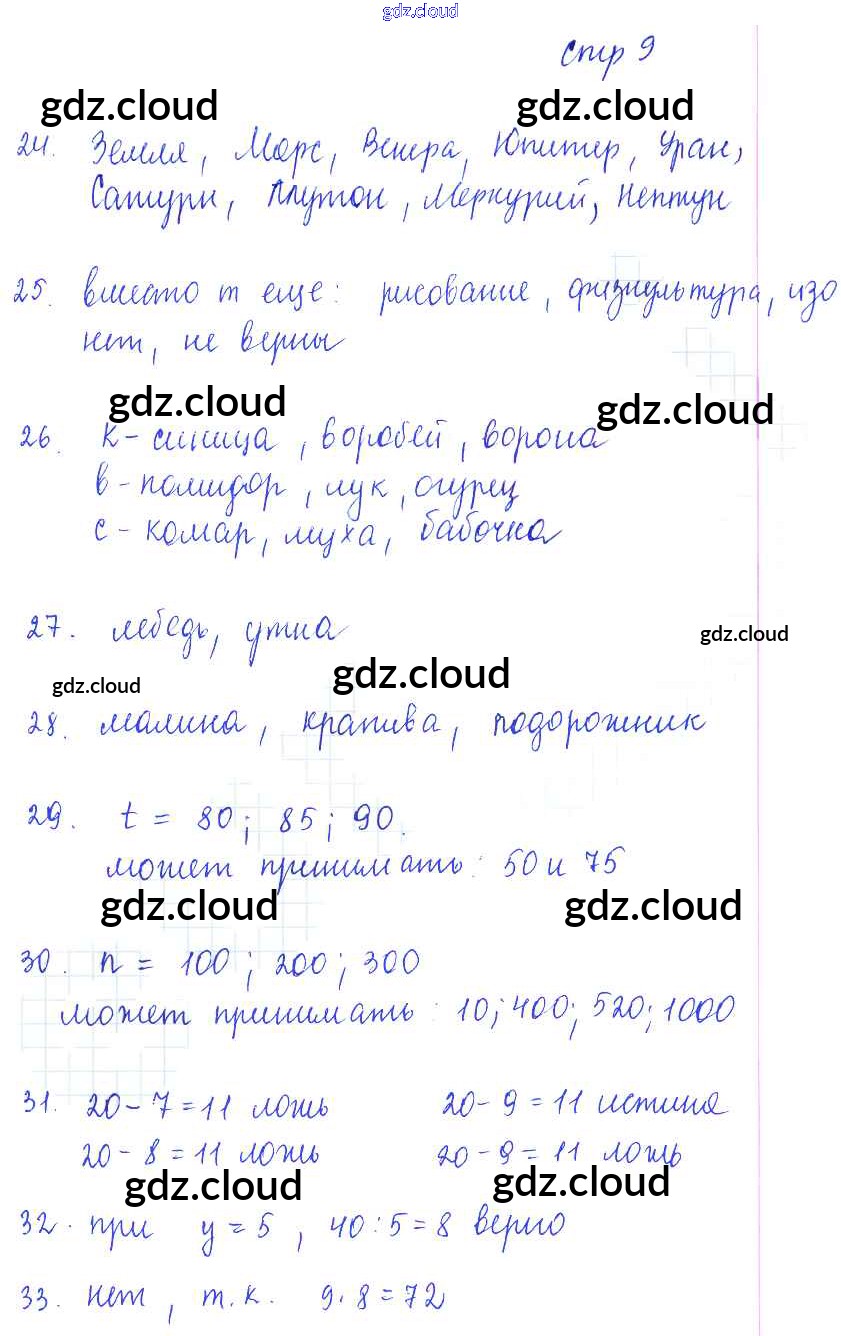 gdz.cloud
стр 9
gdz.cloud gdz.cloud
24. Земля, Марс, Венера, Юпитер, Уран,
Сатурн, Плутон, Меркурий, Нептун
25. вместо т еще: рисование, физкультура, изо
нет, не верны
gdz.cloud gdz.cloud
26. к - синица, воробей, ворона
в - помидор, лук, огурец
с - комар, муха, бабочка
27. лебедь, утка
gdz.cloud
gdz.cloud gdz.cloud
28. малина, крапива, подорожник
29. t = 80; 85; 90.
может принимать: 50 и 75
gdz.cloud gdz.cloud
30. n = 100; 200; 300
может принимать: 10; 400; 520; 1000
31. 20 - 7 = 11 ложь 20 - 9 = 11 истина
20 - 8 = 11 ложь 20 - 9 = 11 ложь
gdz.cloud gdz.cloud
32. при у = 5, 40 : 5 = 8 верно
33. нет, т.к. 9 · 8 = 72